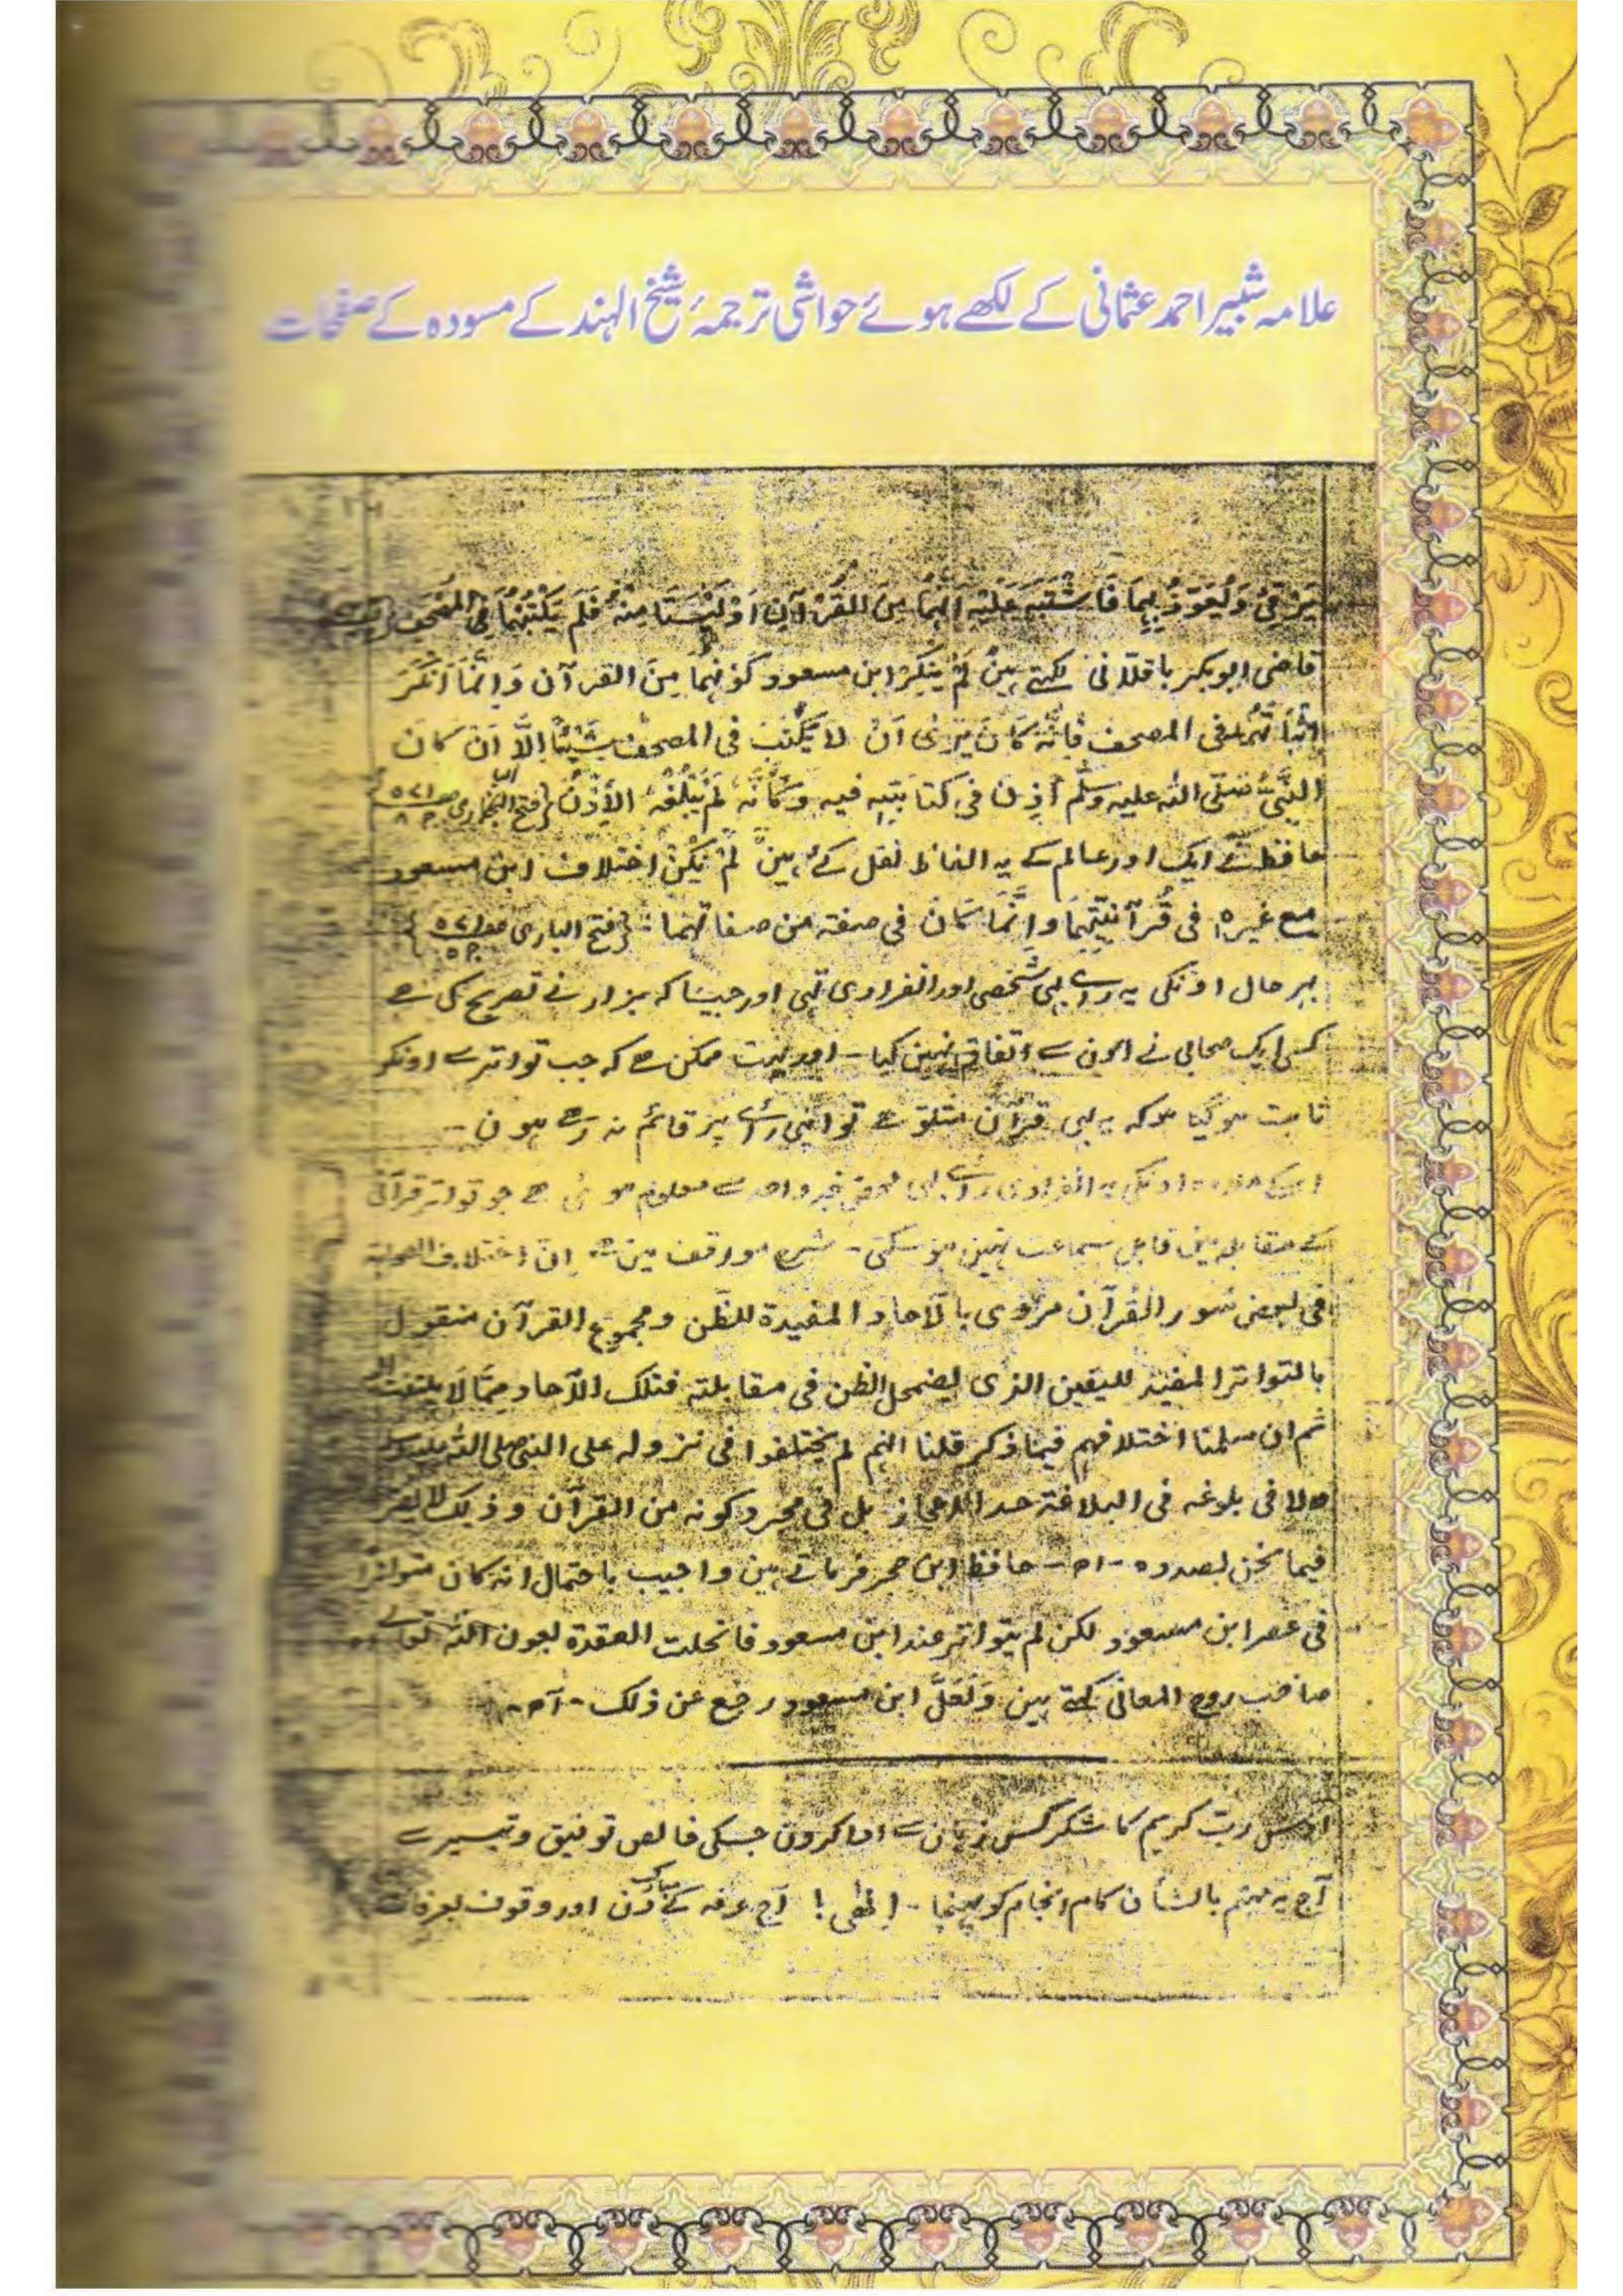 علامہ شبیر احمد عثمانی کے لکھے ہوئے حواشی ترجمۂ شیخ الہند کے مسودہ کے صفحات
یرقی و یُعَوِّذُ بِہِمَا فَاشْتَبَہَ عَلَیْہِ اَنَّہُمَا مِنَ القُرْآنِ اَوْ لَیْسَتَا مِنْہُ فَلَمْ یَکْتُبْہُمَا فِی المُصْحَفِ
قاضی ابوبکر باقلانی لکھتے ہین لَمْ یُنکِرْ ابن مسعود کَوْنَہما مِنَ القرآن وَاِنَّمَا اَنْکَرَ
اِثْبَاتَہُمَا فی المصحف فَاِنَّہُ کَانَ یَرٰی اَنْ لَا یُکْتَبَ فی المصحف شَیْئًا اِلَّا اَنْ کَانَ
النَّبِیُّ صَلّی اللہ علیہ وسَلَّم اَذِنَ فی کتابَتِہ فیہ وَکَأَنَّہُ لَمْ یَبْلُغْہُ الاِذْنُ (فتح الباری ص ۵۷۱ ج ۸
حافظ نے ایک اور عالم کے یہ الفاظ نقل کئے ہین لَمْ یَکُنْ اختلاف ابن مسعود
مع غیرہ فی قُرْآنِیَّتِہِمَا وَاِنَّمَا کَانَ فی صفۃ من صفاتہما (فتح الباری ص ۵۷۱
بہر حال اونکی یہ رائے بھی شخصی اور انفرادی تھی اور جیسا کہ بزار نے تصریح کی ہے
کسی ایک صحابی نے اون سے اتفاق نہین کیا ۔ اور بہت ممکن ہے کہ جب تواتر سے اونکو
ثابت ہوگیا ہو کہ یہ بھی قرآن متلو ہے تو اپنی رائے پر قائم نہ رہے ہون ۔
اسکے علاوہ اونکی یہ انفرادی رائے بھی محض خبر واحد سے معلوم ہوئی ہے جو تواتر قرآنی
کے مقابلہ مین قابل سماعت نہین ہوسکتی ۔ شرح مواقف مین ہے اِنَّ اختلاف الصحابۃ
فی بعض سُور القُرآن مروی بالآحاد المفیدۃ للظن و مجموع القرآن منقول
بالتواتر المفید للیقین الذی یضمحل الظن فی مقابلتہ فتلک الآحاد مِمَّا لَا یلتفت الیہ
ثم ان سلمنا اختلافہم فیما ذکر قلنا انہم لم یختلفوا فی نزولہ علی النبی صلی اللہ علیہ وسلم
ولا فی بلوغہ فی البلاغۃ حد الاعجاز بل فی مجرد کونہ من القرآن وذلک لا یضر
فیما نحن بصددہ ۔ اھ ۔ حافظ ابن حجر فرماتے ہین واجیب باحتمال انہ کان متواترا
فی عصر ابن مسعود لکن لم یتواتر عند ابن مسعود فانحلت العقدۃ بعون اللہ تعالی
صاحب روح المعانی کہتے ہین وَلَعَلَّ ابن مسعود رجع عن ذلک ۔ اھ ۔
اوس ربّ کریم کا شکر کس زبان سے ادا کرون جسکی خالص توفیق و تیسیر سے
آج یہ مہتم بالشان کام انجام کو پہنچا ۔ اِلٰہی ! آج عرفہ کے مبارک دن اور وقوف بعرفات